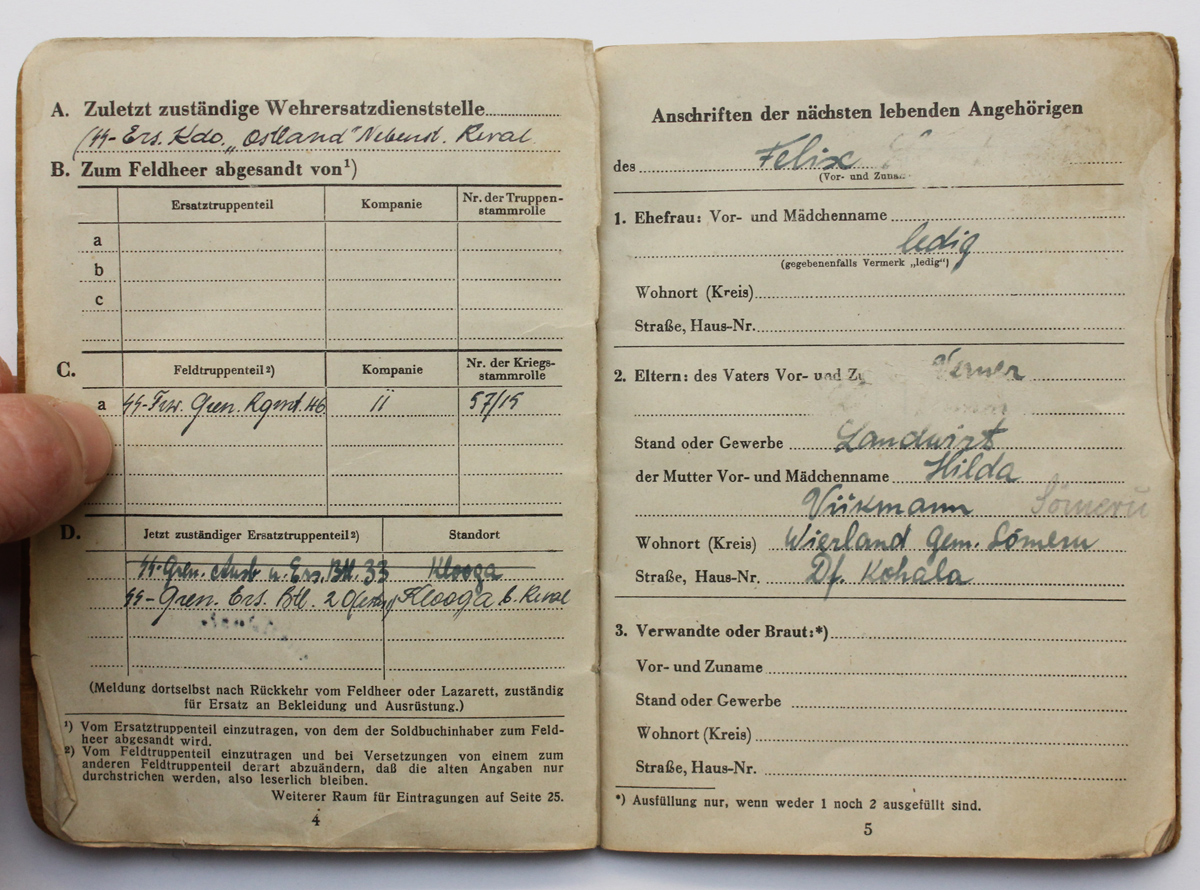 A. Zuletzt zuständige Wehrersatzdienststelle
SS-Ers. Kdo. „Ostland" Nebenst. Reval
B. Zum Feldheer abgesandt von¹)
Ersatztruppenteil Kompanie Nr. der Truppen-
stammrolle
a
b
c
C. Feldtruppenteil²) Kompanie Nr. der Kriegs-
stammrolle
a SS-Frw. Gren. Rgmt. 46 11 57/15
D. Jetzt zuständiger Ersatztruppenteil²) Standort
SS-Gren. Ausb u. Ers. Btl. 33 Klooga
SS-Gren. Ers. Btl. 20 Klooga b. Reval
(Meldung dortselbst nach Rückkehr vom Feldheer oder Lazarett, zuständig
für Ersatz an Bekleidung und Ausrüstung.)
¹) Vom Ersatztruppenteil einzutragen, von dem der Soldbuchinhaber zum Feld-
heer abgesandt wird.
²) Vom Feldtruppenteil einzutragen und bei Versetzungen von einem zum
anderen Feldtruppenteil derart abzuändern, daß die alten Angaben nur
durchstrichen werden, also leserlich bleiben.
Weiterer Raum für Eintragungen auf Seite 25.
4
Anschriften der nächsten lebenden Angehörigen
des Felix
(Vor- und Zuna
1. Ehefrau: Vor- und Mädchenname
ledig
(gegebenenfalls Vermerk „ledig")
Wohnort (Kreis)
Straße, Haus-Nr.
2. Eltern: des Vaters Vor- und Zu Verner
Stand oder Gewerbe Landwirt
der Mutter Vor- und Mädchenname Hilda
Viikmann Sömeru
Wohnort (Kreis) Wierland Gem. Sömeru
Straße, Haus-Nr. Df. Kohala
3. Verwandte oder Braut:*)
Vor- und Zuname
Stand oder Gewerbe
Wohnort (Kreis)
Straße, Haus-Nr.
*) Ausfüllung nur, wenn weder 1 noch 2 ausgefüllt sind.
5